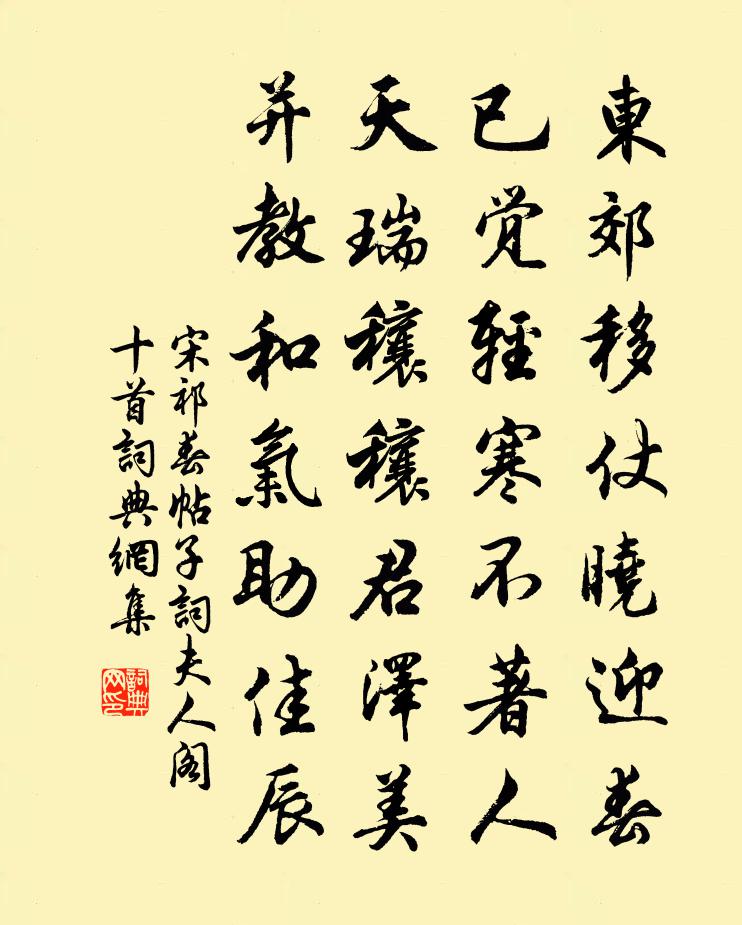 東郊移仗曉迎春
已觉輕寒不著人
天瑞穰穰君澤美
并教和氣助佳辰
宋祁春帖子詞夫人阁
十首詞典網集
詞典
网印